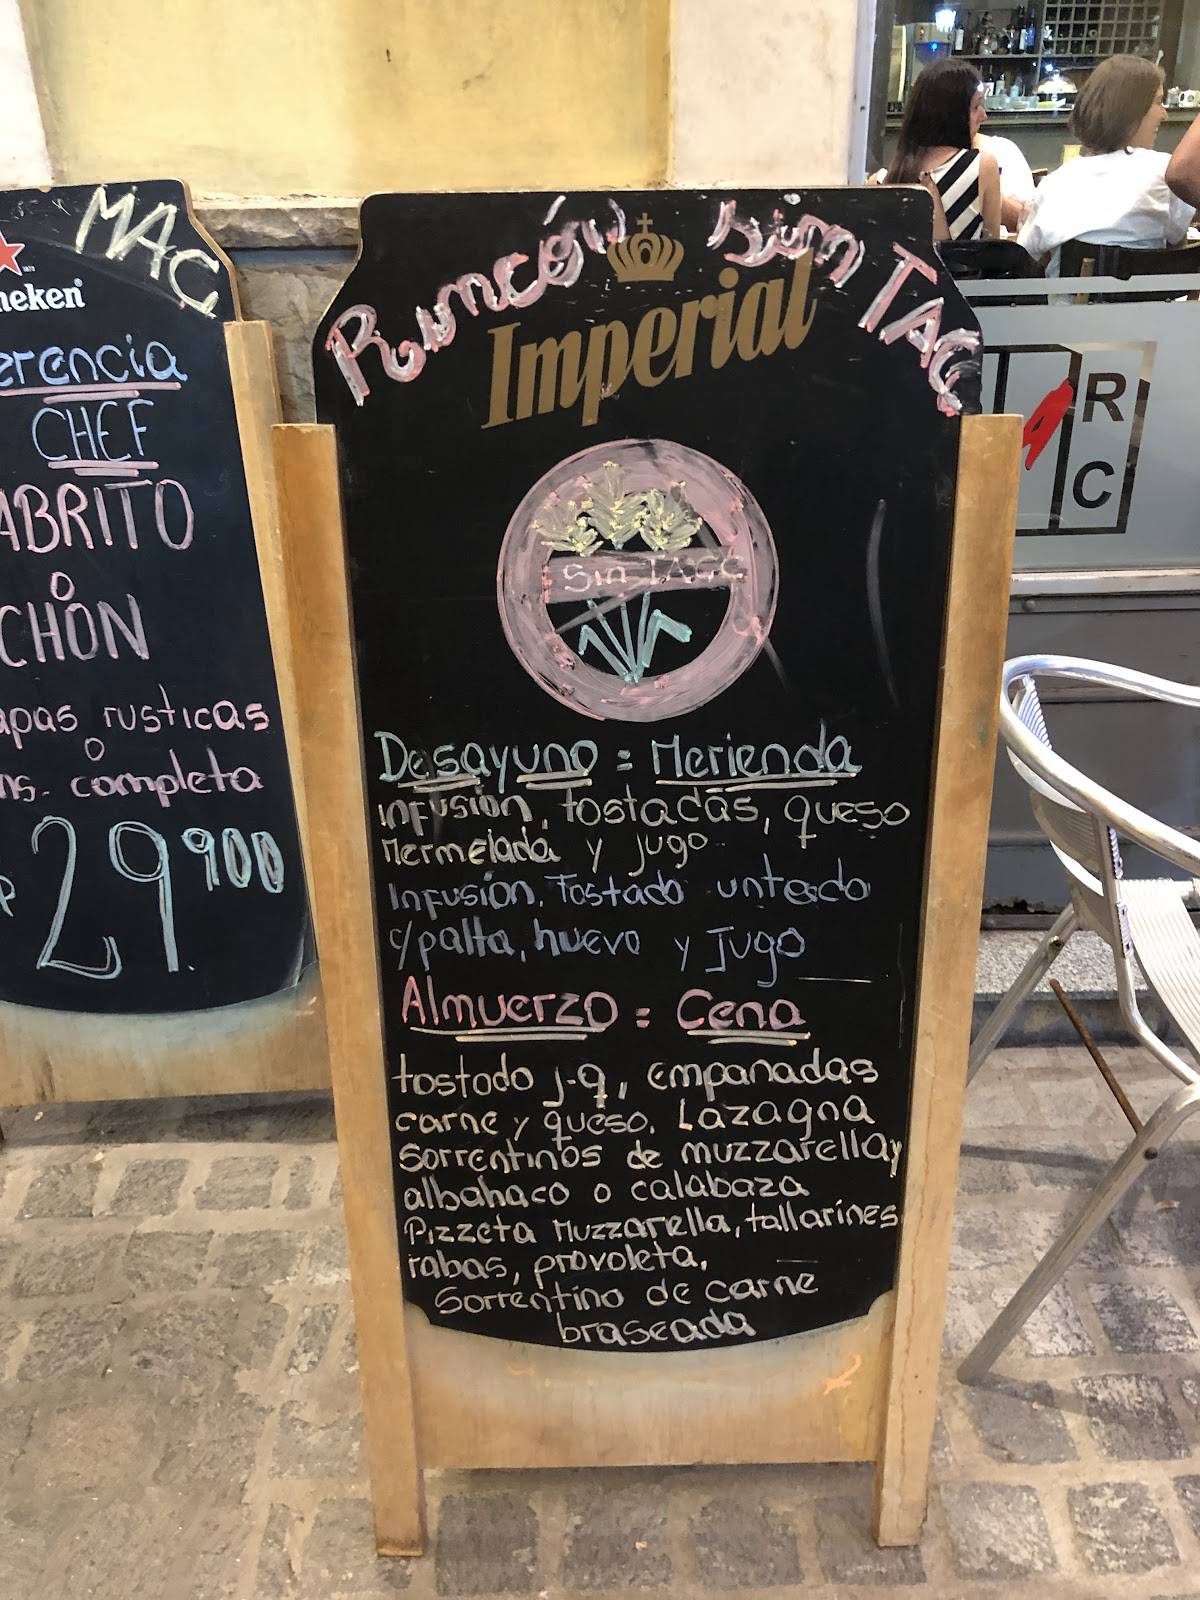 MAC
neken
erencia
CHEF
ABRITO
o
CHON
apas rusticas
o
ns. completa
29.900
Rincón sin TAC
Imperial
Sin TACC
Desayuno = Merienda
Infusión, tostadas, queso
Mermelada y jugo
Infusion, Tostado untado
c/palta, huevo y Jugo
Almuerzo = Cena
tostado j-q, empanadas
carne y queso. Lazagna
Sorrentinos de muzzarella y
albahaca o calabaza
Pizzeta Muzzarella, tallarines
rabas, provoleta,
Sorrentino de carne
braseada
A R
C